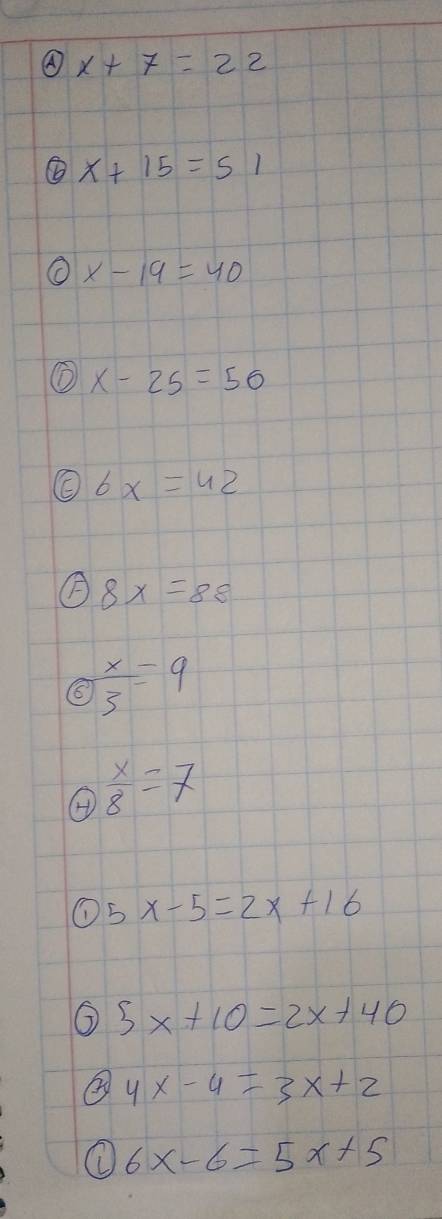 Ⓐ x + 7 = 22
Ⓑ x + 15 = 51
Ⓒ x - 19 = 40
Ⓓ x - 25 = 50
Ⓔ 6x = 42
Ⓕ 8x = 88
Ⓖ x/3 = 9
Ⓗ x/8 = 7
Ⓘ 5x - 5 = 2x + 16
Ⓙ 5x + 10 = 2x + 40
Ⓚ 4x - 4 = 3x + 2
Ⓛ 6x - 6 = 5x + 5